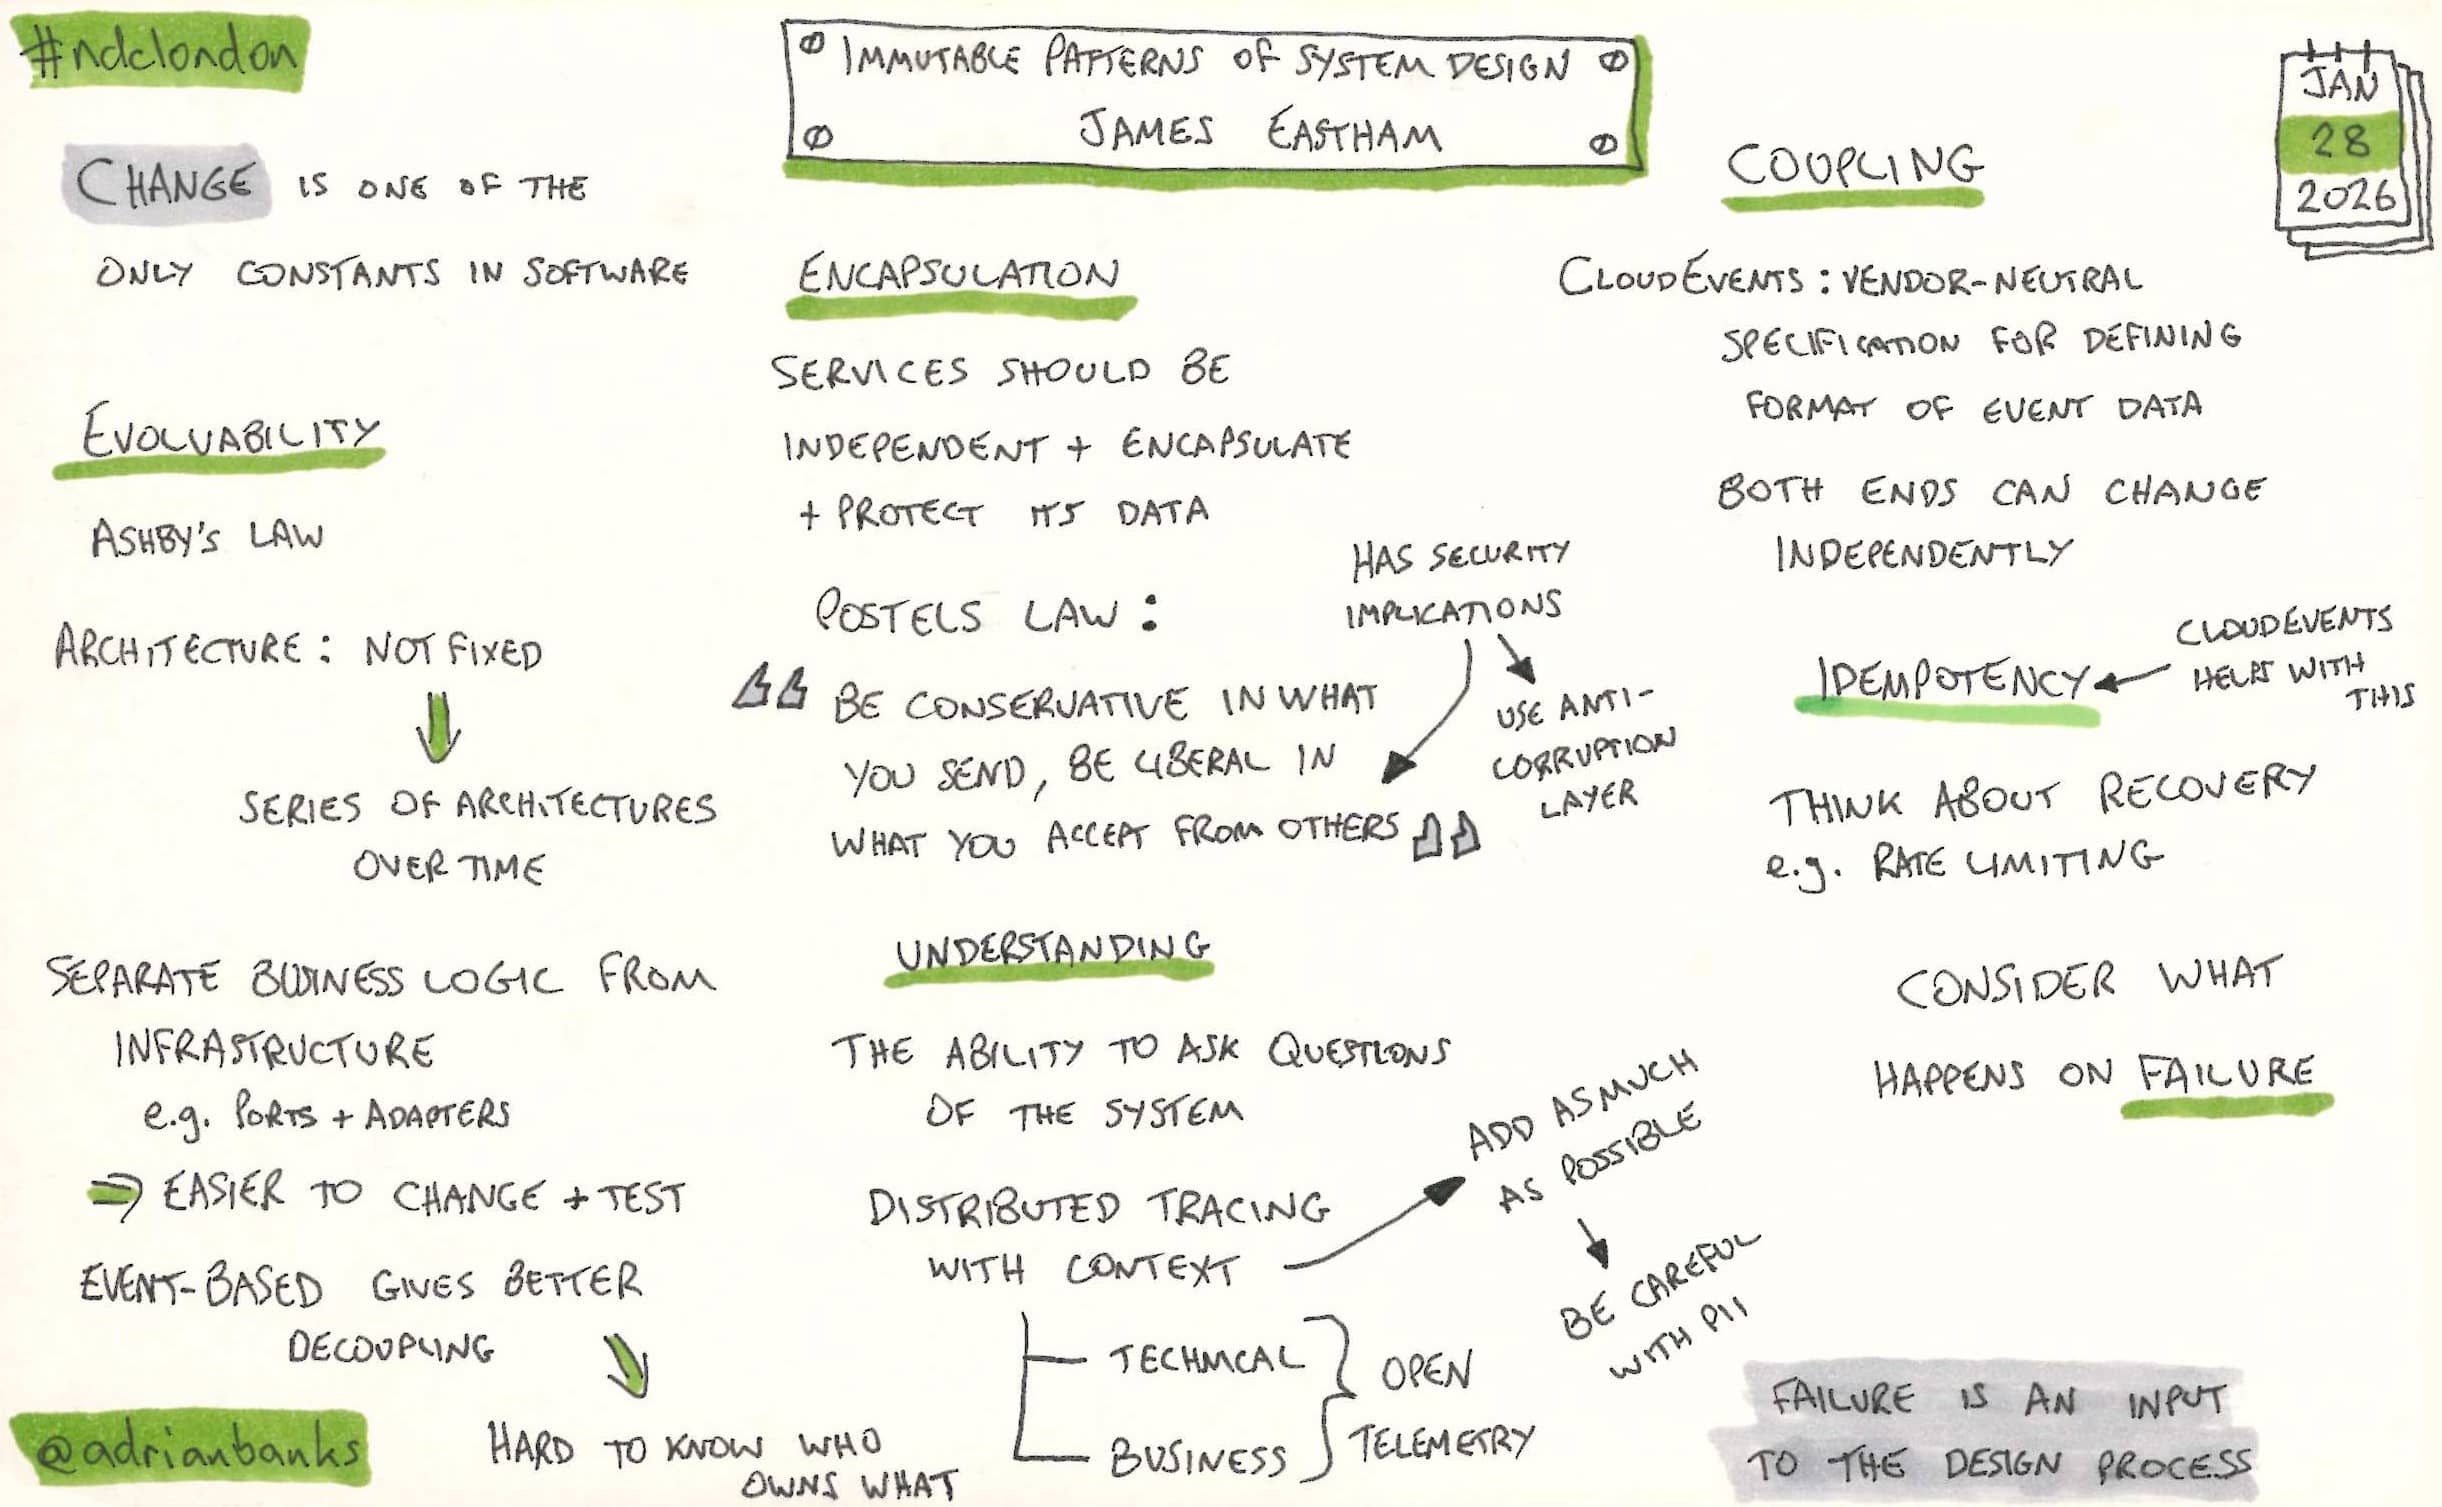 #ndclondon
IMMUTABLE PATTERNS OF SYSTEM DESIGN
JAMES EASTHAM
JAN
28
2026
CHANGE IS ONE OF THE
ONLY CONSTANTS IN SOFTWARE
EVOLVABILITY
ASHBY'S LAW
ARCHITECTURE: NOT FIXED
SERIES OF ARCHITECTURES
OVER TIME
SEPARATE BUSINESS LOGIC FROM
INFRASTRUCTURE
e.g. PORTS + ADAPTERS
⇒ EASIER TO CHANGE + TEST
EVENT-BASED GIVES BETTER
DECOUPLING
HARD TO KNOW WHO
OWNS WHAT
@adrianbanks
ENCAPSULATION
SERVICES SHOULD BE
INDEPENDENT + ENCAPSULATE
+ PROTECT ITS DATA
POSTELS LAW:
"BE CONSERVATIVE IN WHAT
YOU SEND, BE LIBERAL IN
WHAT YOU ACCEPT FROM OTHERS"
HAS SECURITY
IMPLICATIONS
USE ANTI-
CORRUPTION
LAYER
UNDERSTANDING
THE ABILITY TO ASK QUESTIONS
OF THE SYSTEM
DISTRIBUTED TRACING
WITH CONTEXT
TECHNICAL
BUSINESS
OPEN
TELEMETRY
ADD AS MUCH
AS POSSIBLE
BE CAREFUL
WITH PII
COUPLING
CLOUDEVENTS: VENDOR-NEUTRAL
SPECIFICATION FOR DEFINING
FORMAT OF EVENT DATA
BOTH ENDS CAN CHANGE
INDEPENDENTLY
IDEMPOTENCY
CLOUDEVENTS
HELPS WITH
THIS
THINK ABOUT RECOVERY
e.g. RATE LIMITING
CONSIDER WHAT
HAPPENS ON FAILURE
FAILURE IS AN INPUT
TO THE DESIGN PROCESS